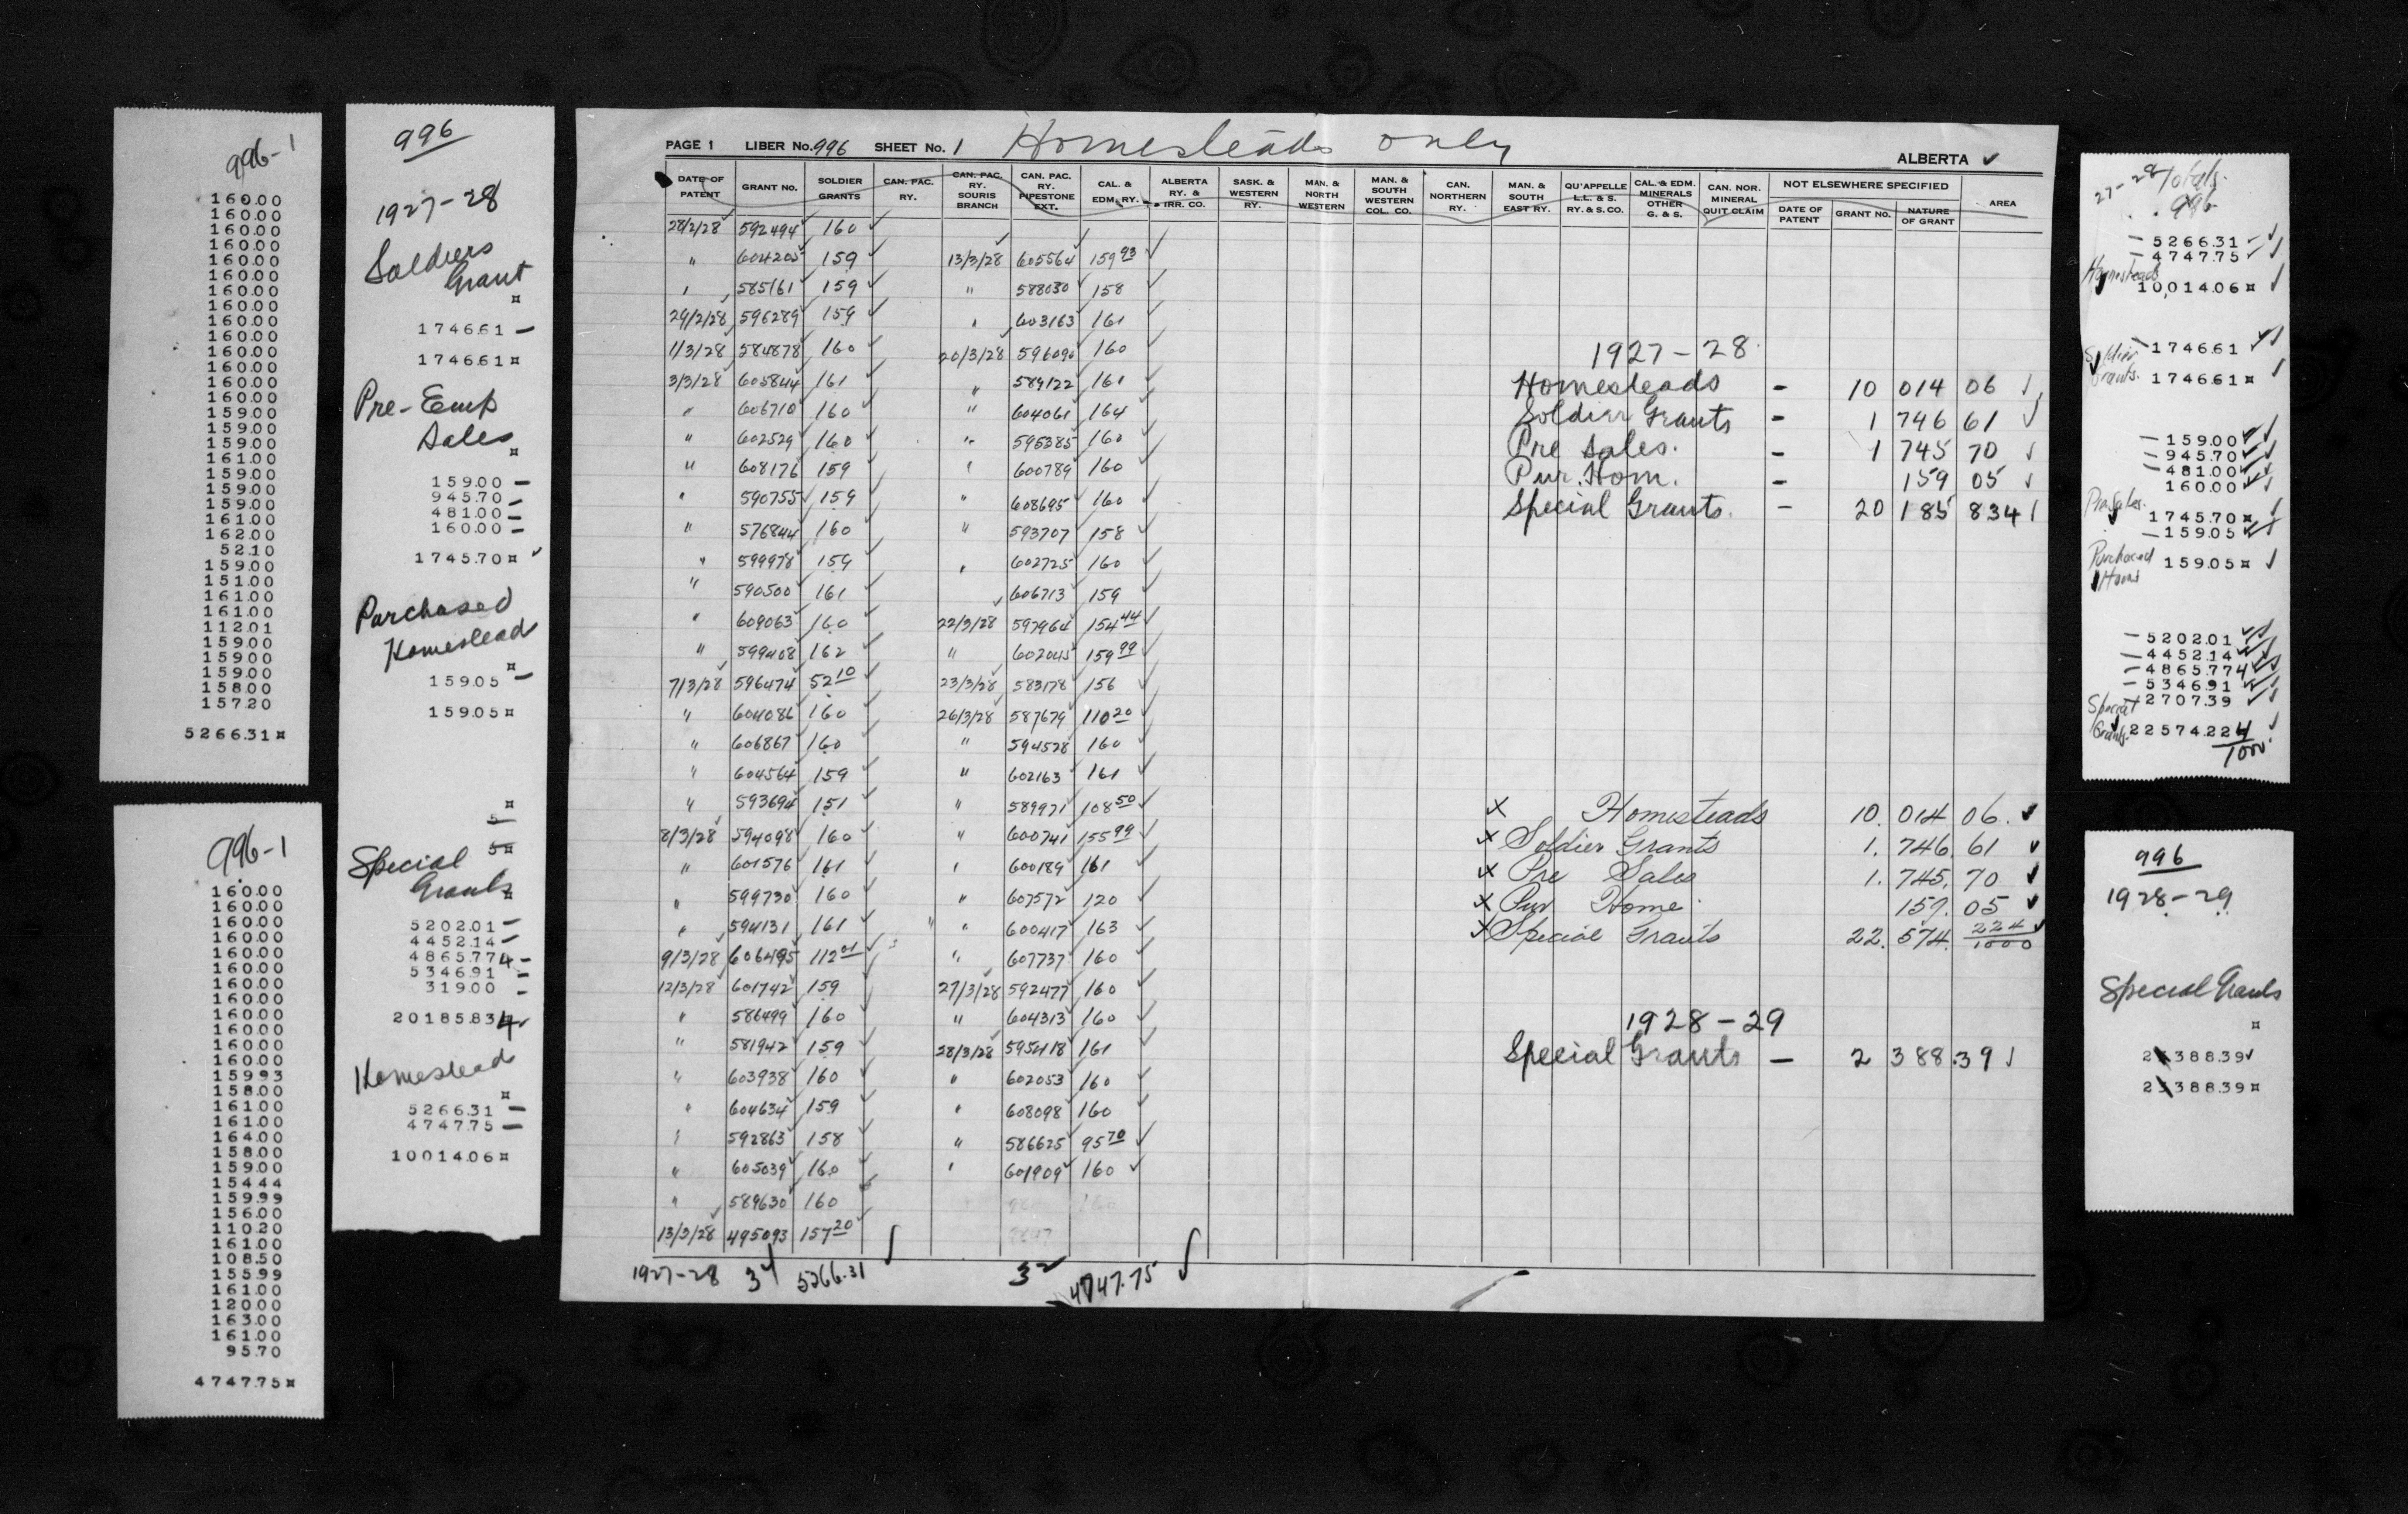 996-1
160.00
160.00
160.00
160.00
160.00
160.00
160.00
160.00
160.00
160.00
160.00
160.00
160.00
160.00
159.00
159.00
159.00
161.00
159.00
159.00
159.00
161.00
162.00
52.10
159.00
151.00
161.00
161.00
112.01
159.00
159.00
159.00
158.00
157.20
5266.31¤
996-1
160.00
160.00
160.00
160.00
160.00
160.00
160.00
160.00
160.00
160.00
160.00
160.00
159.93
158.00
161.00
161.00
164.00
158.00
159.00
154.44
159.99
156.00
110.20
161.00
108.50
155.99
161.00
120.00
163.00
161.00
95.70
4747.75¤
996
1927-28
Soldiers
Grant
¤
1746.61 -
1746.61¤
Pre-Emp
Sales
¤
159.00 -
945.70 -
481.00 -
160.00 -
1745.70¤ ✓
Purchased
Homestead
¤
159.05 -
159.05¤
¤
5
5¤
Special
Grants
¤
5202.01 -
4452.14 -
4865.774 -
5346.91 -
319.00 -
20185.834 ✓
Homestead
¤
5266.31 -
4747.75 -
10014.06¤
PAGE 1 LIBER No. 996 SHEET No. 1 Homesteads only ALBERTA ✓
DATE OF PATENT GRANT NO. SOLDIER GRANTS CAN. PAC. RY. CAN. PAC. RY. SOURIS BRANCH CAN. PAC. RY. PIPESTONE EXT. CAL. & EDM. RY. ALBERTA RY. & IRR. CO. SASK. & WESTERN RY. MAN. & NORTH WESTERN MAN. & SOUTH WESTERN COL. CO. CAN. NORTHERN RY. MAN. & SOUTH EAST RY. QU'APPELLE L.L. & S. RY. & S. CO. CAL. & EDM. MINERALS OTHER G. & S. CAN. NOR. MINERAL QUIT CLAIM NOT ELSEWHERE SPECIFIED
DATE OF PATENT GRANT NO. NATURE OF GRANT AREA
28/2/28 592494 160 ✓
" 604205 159 ✓ 13/3/28 605564 159 93 ✓
" 585161 159 ✓ " 588030 158 ✓
29/2/28 596289 159 ✓ " 603163 161 ✓
1/3/28 584878 160 ✓ 20/3/28 596090 160 ✓
3/3/28 605844 161 ✓ " 589122 161 ✓
" 606710 160 ✓ " 604061 164 ✓
" 602529 160 ✓ " 595385 160 ✓
" 608176 159 ✓ " 600789 160 ✓
" 590755 159 ✓ " 608695 160 ✓
" 576844 160 ✓ " 593707 158 ✓
" 599978 159 ✓ " 602725 160 ✓
" 590500 161 ✓ 606713 159 ✓
" 609063 160 ✓ 22/3/28 597964 154 44 ✓
" 599408 162 ✓ " 602045 159 99 ✓
7/3/28 596474 52 10 ✓ 23/3/28 583178 156 ✓
" 604086 160 ✓ 26/3/28 587679 110 20 ✓
" 606867 160 ✓ " 594528 160 ✓
" 604564 159 ✓ " 602163 161 ✓
" 593694 151 ✓ " 589971 108 50 ✓
8/3/28 594098 160 ✓ " 600741 155 99 ✓
" 601576 161 ✓ " 600189 161 ✓
" 599730 160 ✓ " 607572 120 ✓
" 594131 161 ✓ " 600417 163 ✓
9/3/28 606495 112 01 ✓ " 607737 160 ✓
12/3/28 601742 159 ✓ 27/3/28 592477 160 ✓
" 586499 160 ✓ " 604313 160 ✓
" 581942 159 ✓ 28/3/28 595418 161 ✓
" 603938 160 ✓ " 602053 160 ✓
" 604634 159 ✓ " 608098 160 ✓
" 592863 158 ✓ " 586625 95 70 ✓
" 605039 160 ✓ " 601909 160 ✓
" 589630 160
13/3/28 495093 157 20
1927-28 34 5266.31 32 4747.75
1927-28
Homesteads - 10 014 06 ✓
Soldier Grants - 1 746 61 ✓
Pre Sales. - 1 745 70 ✓
Pur. Hom. - 159 05 ✓
Special Grants. - 20 185 834 ✓
x Homesteads 10. 014 06. ✓
x Soldier Grants 1. 746. 61 ✓
x Pre Sales 1. 745. 70 ✓
x Pur Home. 159. 05 ✓
x Special Grants 22. 574. 224/1000 ✓
1928-29
Special Grants - 2 388.39 ✓
27-28 Totals.
996
- 5266.31 ✓✓
- 4747.75 ✓✓
Homesteads
10,014.06¤ ✓
Soldier
Grants.
- 1746.61 ✓✓
1746.61¤ ✓
- 159.00 ✓✓
- 945.70 ✓✓
- 481.00 ✓✓
160.00 ✓✓
Pre Sales.
1745.70¤ ✓
- 159.05 ✓✓
Purchased
Homs
159.05¤ ✓
- 5202.01 ✓✓
- 4452.14 ✓✓
- 4865.774 ✓✓
- 5346.91 ✓✓
Special 2707.39 ✓✓
Grants. 22574.224 ✓
1000
996
1928-29
Special Grants
¤
2388.39 ✓
2388.39¤